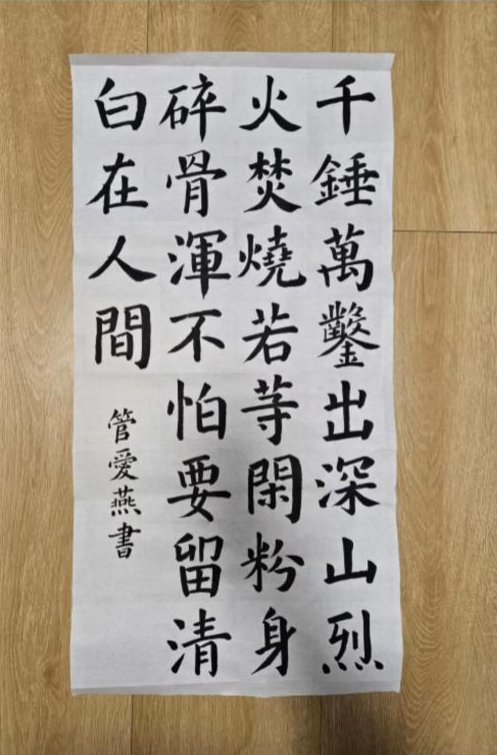 千錘萬鑿出深山烈
火焚燒若等閑粉身
碎骨渾不怕要留清
白在人間
管愛燕書